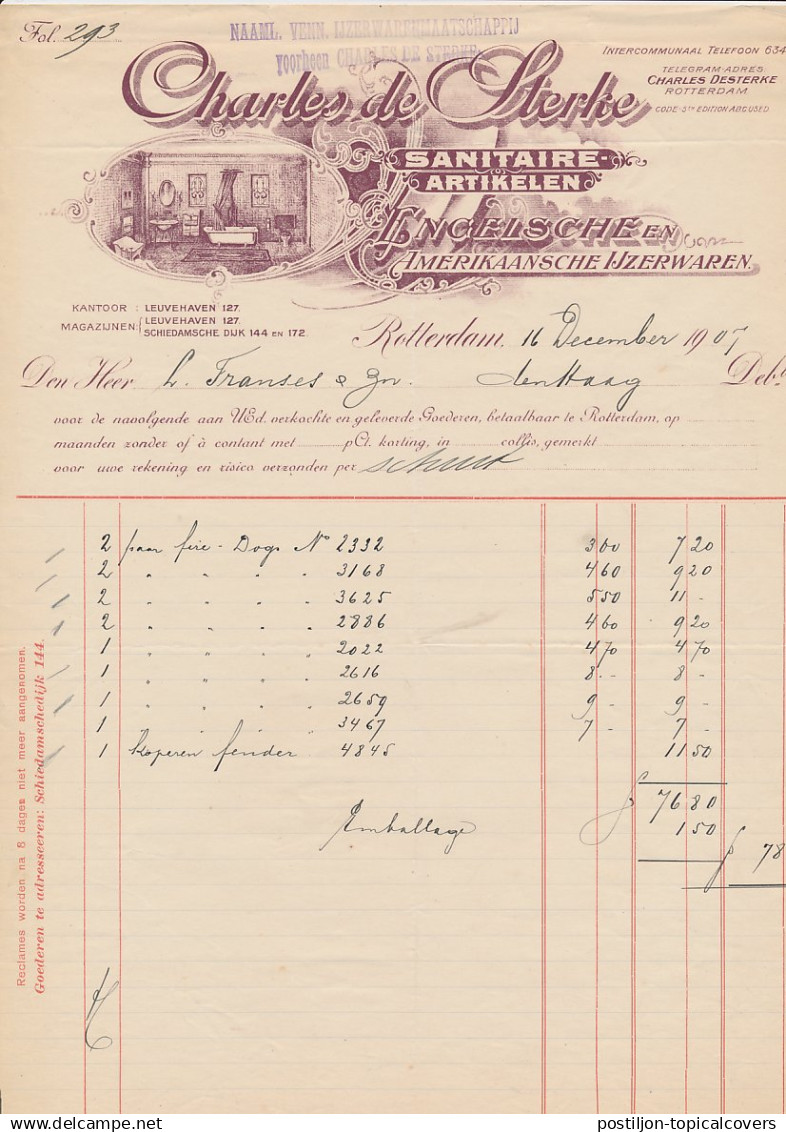 Fol. 293
NAAML. VENN. IJZERWARENMAATSCHAPPIJ
voorheen CHARLES DE STERKE
INTERCOMMUNAAL TELEFOON 634
TELEGRAM-ADRES:
CHARLES DESTERKE
ROTTERDAM
CODE-5TH EDITION ABC USED
Charles de Sterke
SANITAIRE-
ARTIKELEN
ENGELSCHE EN
AMERIKAANSCHE IJZERWAREN.
KANTOOR : LEUVEHAVEN 127.
MAGAZIJNEN: LEUVEHAVEN 127.
SCHIEDAMSCHE DIJK 144 EN 172.
Rotterdam, 16 December 1907
Den Heer L. Franses & Zn. den Haag Debt
voor de navolgende aan UEd. verkochte en geleverde Goederen, betaalbaar te Rotterdam, op
maanden zonder of à contant met pCt. korting, in collis, gemerkt
voor uwe rekening en risico verzonden per schuit
2 paar fire-Dogs No 2332 360 720
2 " " " " 3168 460 920
2 " " " " 3625 550 11 -
2 " " " " 2886 460 920
1 " " " " 2022 470 470
1 " " " " 2616 8 - - 8 -
1 " " " " 2659 9 - 9 -
1 " " " " 3467 7 - 7 -
1 koperen fender 4845 1150
f 7680
Emballage 150
f 78
Reclames worden na 8 dagen niet meer aangenomen.
Goederen te adresseeren: Schiedamschedijk 144.
postiljon-topicalcovers